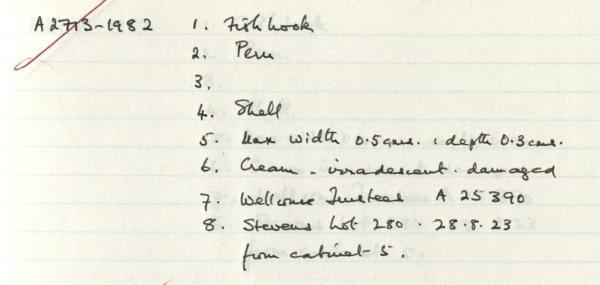 A2713-1982 1. Fishhook
2. Peru
3.
4. Shell
5. Max width 0.5cms. : depth 0.3cms.
6. Cream - irradescent. damaged
7. Wellcome Trustees A 25390
8. Stevens Lot 280. 28.8.23
from cabinet 5.